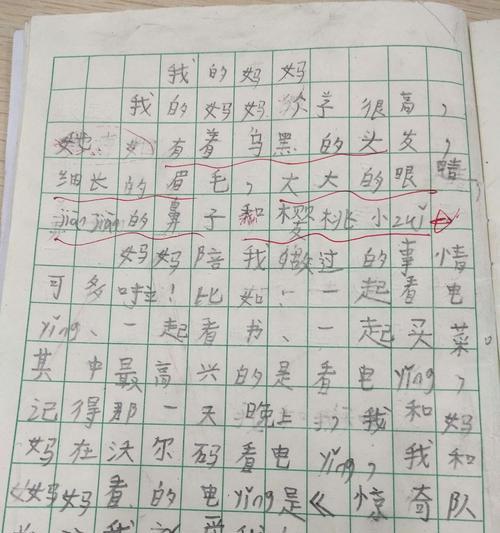 我的妈妈
我的妈妈个子很高，
她有着乌黑的头发，
细长的眉毛，大大的眼睛
jiān jiān的鼻子和樱桃小zuǐ
妈妈陪我做过的事情
可多啦！比如：一起看电
yǐng、一起看书、一起买菜
其中最高兴的是看电yǐng，
记得那一天晚上，我和妈
妈在沃尔码看电yǐng，我和
妈妈看的电yǐng是《惊奇队